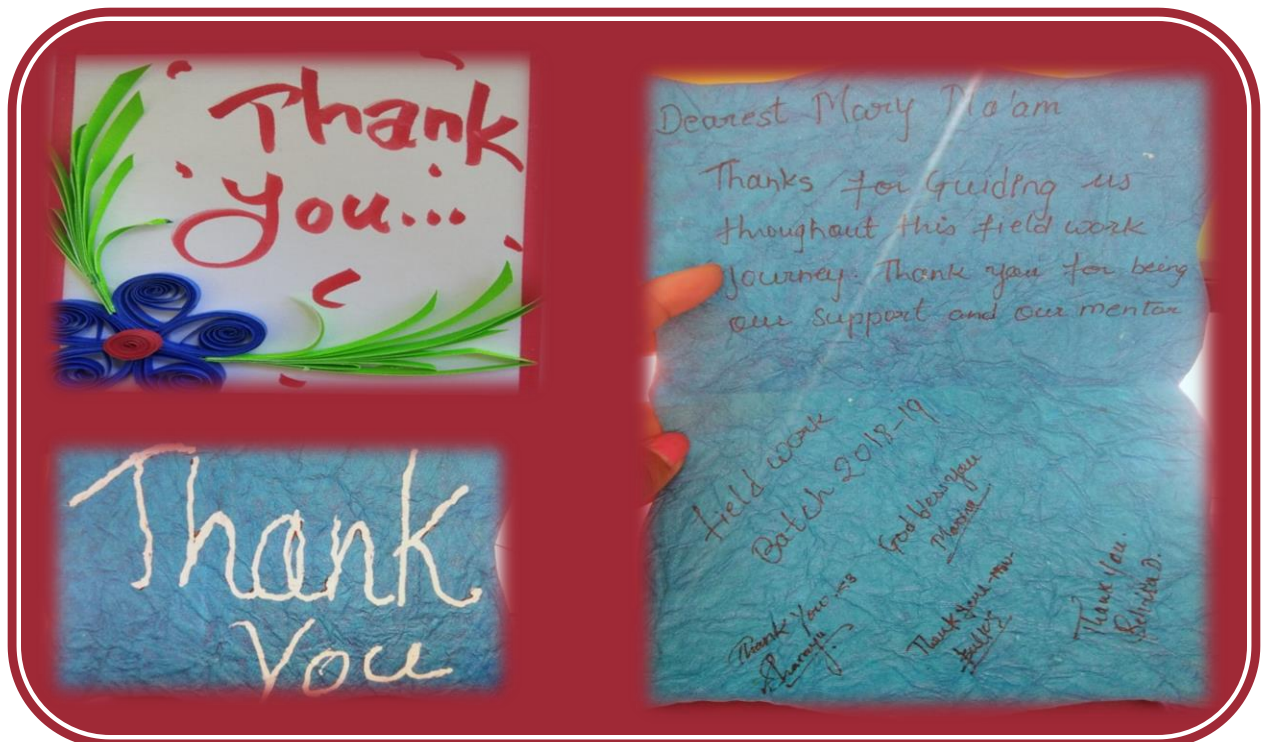 Thank
you...
Thank
You
Dearest Mary Ma'am
Thanks for Guiding us
throughout this field work
journey. Thank you for being
our support and our mentor
field work
Batch 2018-19
God bless you
Thank You
Thank You
Thank You.